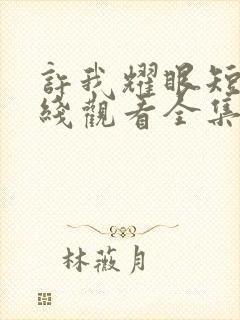 許我耀眼短
綫觀看全集
林薇月